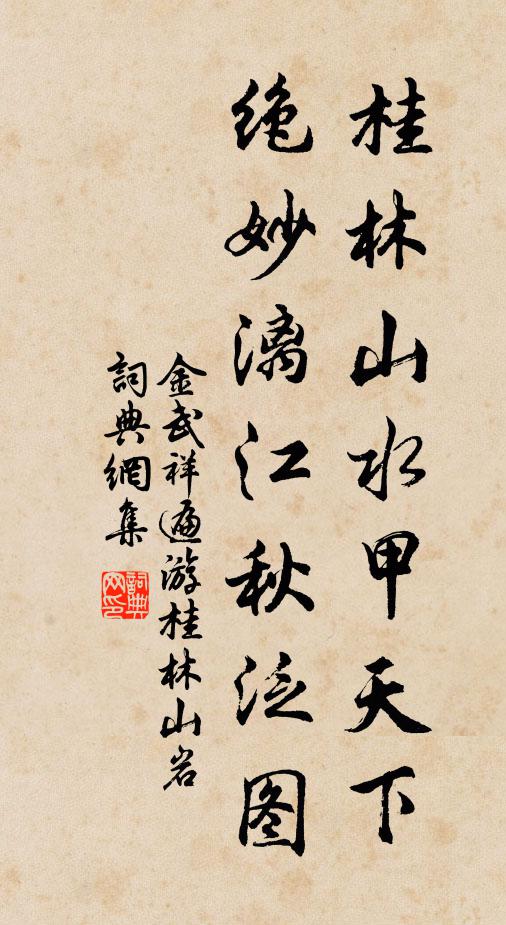 桂林山水甲天下
绝妙漓江秋泛图
金武祥遍游桂林山岩
詞典網集
詞典网印